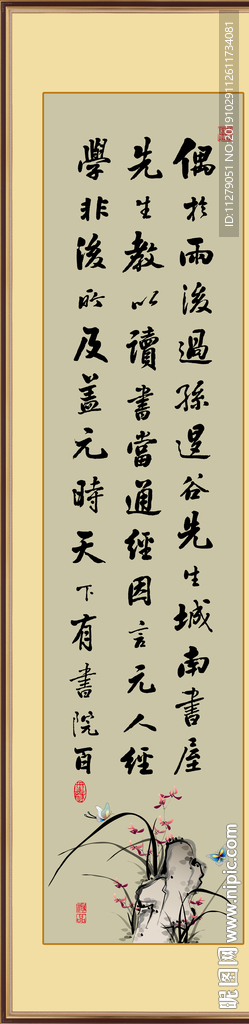 偶於雨後過孫退谷先生城南書屋
先生教以讀書當通經因言元人經
學非後所及蓋元時天下有書院百
ID:11279051 NO:20191029112611734081
昵图网 www.nipic.com